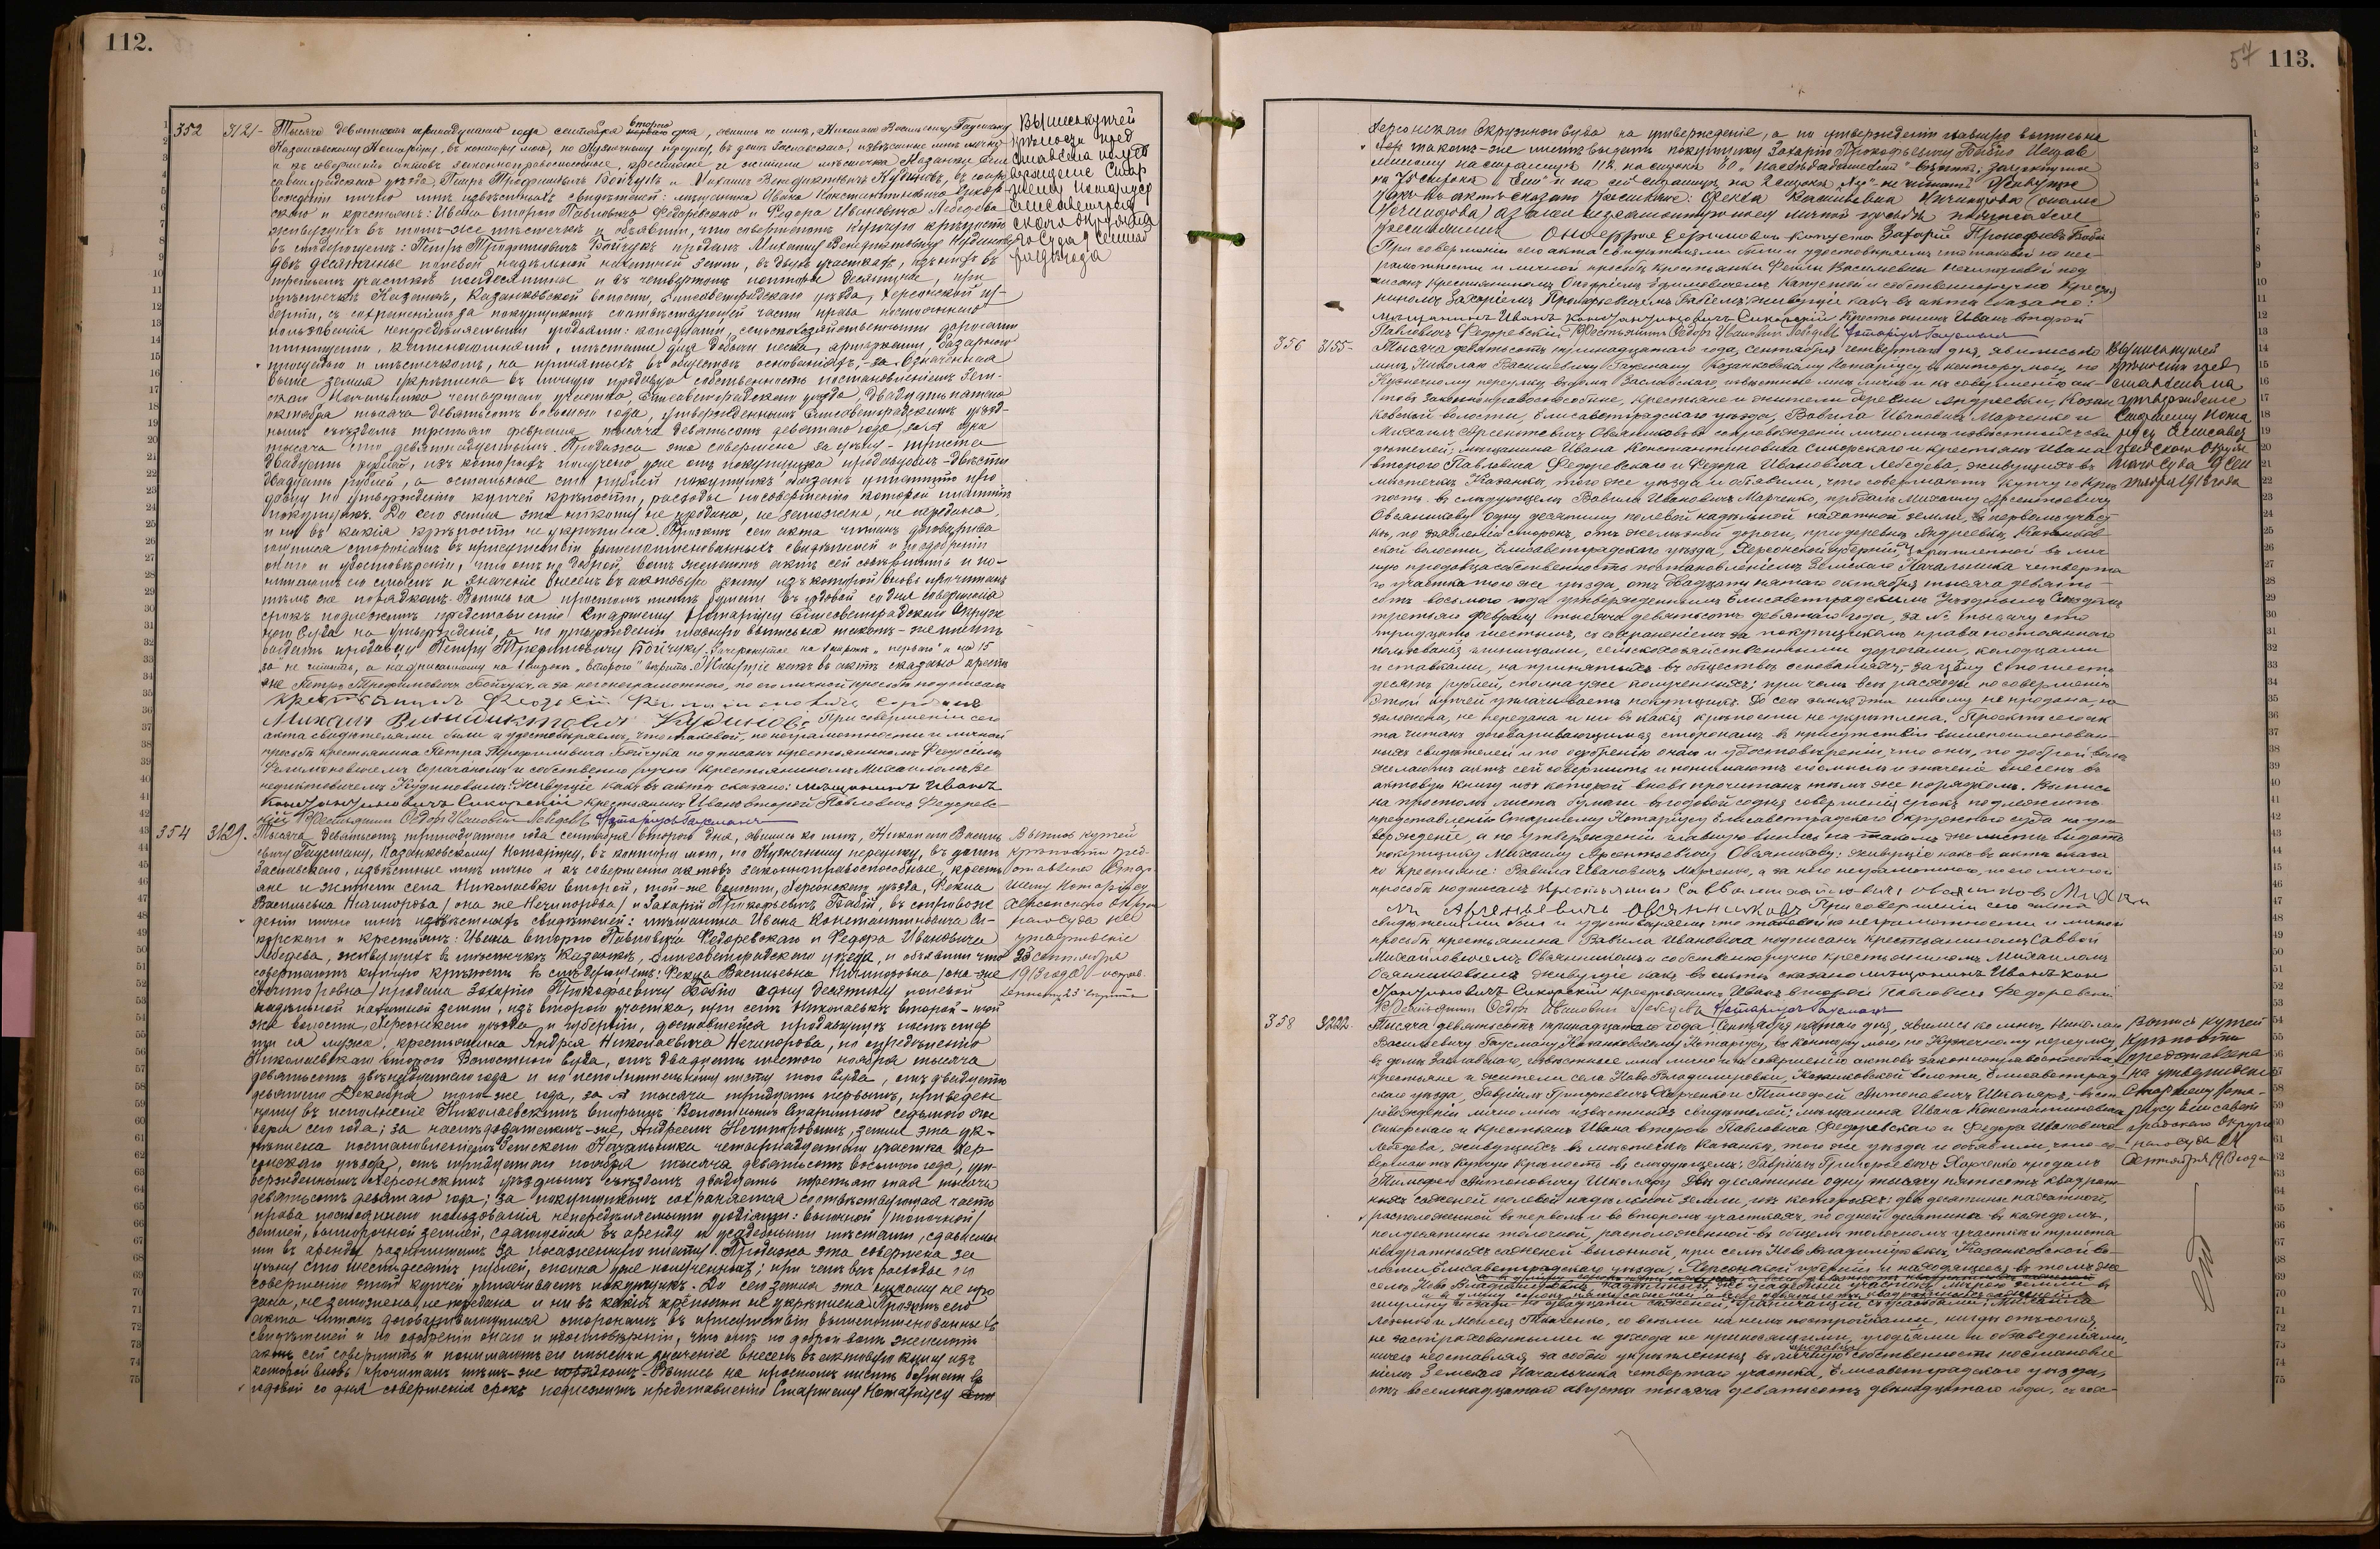 112.
352 3121- Тысяча девятьсотъ тринадцатаго года сентября второго дня, явились ко мнѣ, Николаю Васильевичу Гаусману
Казанковскому Нотаріусу, въ контору мою, по Кузнечному переулку, въ домѣ Заславскаго, извѣстные мнѣ лично
и къ совершенію актовъ законноправоспособные, крестьяне и жители мѣстечка Казанки Ели
саветградскаго уѣзда, Петръ Трофимовичъ Бойчукъ и Михаилъ Венедиктовичъ Кудиновъ, въ сопро
вожденіи лично мнѣ извѣстныхъ свидѣтелей: мѣщанина Ивана Константиновича Сикор
скаго и крестьянъ: Ивана второго Павловича Федоревскаго и Федора Ивановича Лебедева
живущихъ въ томъ-же мѣстечкѣ и объявили, что совершаютъ купчую крѣпость
въ слѣдующемъ: Петръ Трофимовичъ Бойчукъ продалъ Михаилу Венедиктовичу Кудинову
двѣ десятины полевой надѣльной пахотной земли, въ двухъ участкахъ, изъ нихъ въ
третьемъ участкѣ полдесятины и въ четвертомъ полторы десятины, при
мѣстечкѣ Казанкѣ, Казанковской волости, Елисаветградскаго уѣзда, Херсонской гу-
берніи, съ сохраненіемъ за покупщикомъ соотвѣтствующей части права постояннаго
пользованія непередѣляемыми угодьями: колодцами, сельскохозяйственными дорогами
глинищами, каменоломнями, мѣстами для добычи песка, базарною
площадью и мѣстечкомъ, на принятыхъ въ обществѣ основаніяхъ, за Означенная
выше земля укрѣплена въ личную продавца собственность постановленіемъ Зем-
скаго Начальника четвертаго участка, Елисаветградскаго уѣзда, двадцать пятаго
октября тысяча девятьсотъ восьмого года, утвержденнымъ Елисаветградскимъ уѣзд-
нымъ съѣздомъ третьяго февраля тысяча девятьсотъ девятаго года, за №
тысяча сто девятнадцатымъ. Продажа эта совершена за цѣну - триста
двадцать рублей, изъ которыхъ получено уже отъ покупщика продавцомъ - двѣсти
двадцать рублей, а остальные сто рублей покупщикъ обязанъ уплатить про
давцу по утвержденію купчей крѣпости, расходы по совершенію которой платитъ
покупщикъ. До сего земля эта никому не продана, не заложена, не передана,
и ни въ какія крѣпости не укрѣплена. Проэктъ сего акта читанъ договарива
ющимся сторонамъ въ присутствіи вышепоименованныхъ свидѣтелей и по одобреніи
онаго и удостовѣреніи, что они по доброй волѣ желаютъ актъ сей совершить и по-
нимаютъ его смыслъ и значеніе внесенъ въ актовую книгу изъ которой вновь прочитанъ
тѣмъ же порядкомъ. Выпись на простомъ листѣ бумаги въ годовой со дня совершенія
срокъ подлежитъ представленію Старшему Нотаріусу Елисаветградскаго Окруж
наго Суда на утвержденіе, а по утвержденіи главную выпись на такомъ-же листѣ
выдать продавцу Петру Трофимовичу Бойчуку. Зачеркнутое на 1 строкѣ „перваго" и на 15
„за" не читать, а надписанному на 1 строкѣ „второго" вѣрить. Живущіе какъ въ актѣ сказано крестья
не Петръ Трофимовичъ Бойчукъ, а за него неграмотнаго, по его личной просьбѣ подписалъ
Крестьянинъ Феодосій Филимоновичъ
Михаилъ Винидиктовичъ Кудиновъ При совершеніи сего
акта свидѣтелями были и удостовѣряемъ, что таковой, по неграмотности и личной
просьбѣ крестьянина Петра Трофимовича Бойчука подписанъ крестьяниномъ Феодосіемъ
Филимоновичемъ и собственноручно крестьяниномъ Михаиломъ Ве
недиктовичемъ Кудиновымъ. Живущіе какъ въ актѣ сказано: мѣщанинъ Иванъ
Константиновичъ Сикорскій крестьянинъ Иванъ второй Павловичъ Федоревс-
кій Крестьянинъ Федоръ Ивановичъ Лебедевъ Нотаріусъ Гаусманъ
Выпись купчей
крѣпости пред
ставлена
Стар
шему Нотаріусу
Елисаветград
скаго окружна
го Суда 9 сентяб
ря 1913 года
354 3129. Тысяча девятьсотъ тринадцатаго года сентября второго дня, явились ко мнѣ, Николаю Василь
евичу Гаусману, Казанковскому Нотаріусу, въ контору мою, по Кузнечному переулку, въ домѣ
Заславскаго, извѣстные мнѣ лично и къ совершенію актовъ законноправоспособные, кресть
яне и жители села Николаевки второй, той-же волости, Херсонскаго уѣзда, Фекла
Васильевна Ничипорова /она же Нечипорова/ и Захарій Прокофьевичъ Бабій, въ сопровож
деніи лично мнѣ извѣстныхъ свидѣтелей: мѣщанина Ивана Константиновича Си-
корскаго и крестьянъ: Ивана второго Павловича Федоревскаго и Федора Ивановича
Лебедева, живущихъ въ мѣстечкѣ Казанкѣ, Елисаветградскаго уѣзда, и объявили что
совершаютъ купчую крѣпость въ слѣдующемъ: Фекла Васильевна Ничипоровна /она-же
Нечипоровна/ продала Захарію Прокофьевичу Бабію одну десятину полевой
надѣльной пахотной земли, изъ второго участка, при селѣ Николаевкѣ второй - той
же волости, Херсонскаго уѣзда и губерніи, доставшейся продавщицѣ послѣ смер
ти ея мужа, крестьянина Андрея Николаевича Нечипорова, по опредѣленію
Николаевскаго второго Волостного Суда, отъ двадцать шестого ноября тысяча
девятьсотъ двѣнадцатаго года и по исполнительному листу того Суда, отъ двадцать
девятаго Декабря того-же года, за № тысяча тридцать первымъ, приведен
ному въ исполненіе Николаевскимъ вторымъ Волостнымъ Старшиною седьмого ян
варя сего года; за наслѣдодателемъ-же, Андреемъ Нечипоровымъ, земля эта ук-
рѣплена постановленіемъ Земскаго Начальника четырнадцатаго участка Хер-
сонскаго уѣзда, отъ тридцатаго ноября тысяча девятьсотъ восьмого года, ут-
вержденнымъ Херсонскимъ уѣзднымъ съѣздомъ двадцать третьяго мая тысяча
девятьсотъ девятаго года; за покупщикомъ сохраняется соотвѣтствующая часть
права постояннаго пользованія непередѣляемыми угодіями: выгонной /толочной/
землей, сдающейся въ аренду и усадебными мѣстами, сдаваемы
ми въ аренду разночинцамъ за посаженную плату. Продажа эта совершена за
цѣну сто шестьдесятъ рублей, сполна уже полученныхъ; при чемъ всѣ расходы по
совершенію этой купчей уплачиваетъ покупщикъ. До сего земля эта никому не про
дана, не заложена, не передана и ни въ какія крѣпости не укрѣплена. Проэктъ сего
акта читанъ договаривающимся сторонамъ въ присутствіи вышепоименованныхъ
свидѣтелей и по одобреніи онаго и удостовѣреніи, что они по доброй волѣ желаютъ
актъ сей совершить и понимаютъ его смыслъ и значеніе внесенъ въ актовую книгу изъ
которой вновь прочитанъ тѣмъ-же порядкомъ. Выпись на простомъ листѣ бумаги въ
годовой со дня совершенія срокъ подлежитъ представленію Старшему Нотаріусу
Выпись купчей
крѣпости пред-
ставлена Стар
шему Нотаріусу
Херсонскаго Окруж
наго Суда на
утвержденіе
23 сентября
1913 года
57 113.
Херсонскаго Окружного Суда на утвержденіе, а по утвержденіи главную выпись на
такомъ-же листѣ выдать покупщику Захарію Прокофьевичу Бабію
на 75 строкѣ „Ели" и на сей страницѣ на 2 строкѣ не читать Живущіе
какъ въ актѣ сказано Крестьяне: Фекла Васильевна Ничипорова (она же
Нечипорова) а за нее неграмотную по ея личной просьбѣ подписался
крестьянинъ Онофрій Ефимовичъ Капуста Захарій Прокофьевъ Бабій
При совершеніи сего акта свидѣтелями были и удостовѣряемъ что таковой по нег-
рамотности и личной просьбѣ крестьянки Феклы Васильевны Нечипоровой под
писанъ крестьяниномъ Онофріемъ Ефимовичемъ Капустой и собственноручно кресть
яниномъ Захаріемъ Прокофьевичемъ Бабіемъ. Живущіе какъ въ актѣ сказано:
мѣщанинъ Иванъ Константиновичъ Сикорскій Крестьянинъ Иванъ второй
Павловичъ Федоревскій Крестьянинъ Федоръ Ивановичъ Лебедевъ Нотаріусъ Гаусманъ
356 3155- Тысяча девятьсотъ тринадцатаго года, сентября четвертаго дня, явились ко
мнѣ, Николаю Васильевичу Гаусману Казанковскому Нотаріусу въ контору мою, по
Кузнечному переулку, въ домѣ Заславскаго, извѣстные мнѣ лично и къ совершенію ак
товъ законноправоспособные, крестьяне и жители деревни Андреевки, Казан
ковской волости, Елисаветградскаго уѣзда, Вавила Ивановичъ Марченко и
Михаилъ Арсентьевичъ Овсянниковъ въ сопровожденіи лично мнѣ извѣстныхъ сви
дѣтелей; мѣщанина Ивана Константиновича Сикорскаго и крестьянъ Ивана
второго Павловича Федоревскаго и Федора Ивановича Лебедева, живущихъ въ
мѣстечкѣ Казанкѣ, того же уѣзда и объявили, что совершаютъ купчую крѣ
пость въ слѣдующемъ Вавила Ивановичъ Марченко, продалъ Михаилу Арсентьевичу
Овсянникову одну десятину полевой надѣльной пахотной земли, въ первомъ учас
кѣ, по заявленію сторонъ, отъ желѣзной дороги, при деревнѣ Андреевкѣ Казанков
ской волости, Елисаветградскаго уѣзда, Херсонской губерніи, укрѣпленной въ лич
ную продавца собственность постановленіемъ Земскаго Начальника четверта
го участка того же уѣзда, отъ двадцать пятаго октября тысяча девять-
сотъ восьмого года утвержденнымъ Елисаветградскимъ Уѣзднымъ Съѣздомъ
третьяго февраля тысяча девятьсотъ девятаго года, за № тысячу сто
тридцать шестымъ, съ сохраненіемъ за покупщикомъ права постояннаго
пользованія глинищами, сельскохозяйственными дорогами, колодцами
и ставками, на принятыхъ въ обществѣ основаніяхъ, за цѣну сто шесть
десятъ рублей, сполна уже полученныхъ; при чемъ всѣ расходы по совершенію
этой купчей уплачиваетъ покупщикъ. До сего земля эта никому не продана, не
заложена, не передана и ни въ какія крѣпости не укрѣплена. Проэктъ сего ак
та читанъ договаривающимся сторонамъ въ присутствіи вышепоименован-
ныхъ свидѣтелей и по одобреніи онаго и удостовѣреніи, что они, по доброй волѣ
желаютъ актъ сей совершить и понимаютъ его смыслъ и значеніе внесенъ въ
актовую книгу изъ которой вновь прочитанъ тѣмъ же порядкомъ. Выпись
на простомъ листѣ бумаги въ годовой со дня совершенія срокъ подлежитъ
представленію Старшему Нотаріусу Елисаветградскаго Окружного Суда на ут
вержденіе, а по утвержденіи главную выпись на такомъ же листѣ выдать
покупщику Михаилу Арсентьевичу Овсянникову: Живущіе какъ въ актѣ сказа
но крестьяне: Вавила Ивановичъ Марченко, а за него неграмотнаго, по его личной
просьбѣ подписалъ крестьянинъ Савва Михайловичъ Овсянниковъ Михаи
лъ Арсеньевичъ Овсянниковъ При совершеніи сего акта
свидѣтелями были и удостовѣряемъ что таковой по неграмотности и личной
просьбѣ крестьянина Вавила Ивановича подписанъ крестьяниномъ Саввой
Михайловичемъ Овсянниковымъ и собственноручно крестьяниномъ Михаиломъ
Овсянниковымъ Живущіе какъ въ актѣ сказано мѣщанинъ Иванъ Кон
стантиновичъ Сикорскій крестьянинъ Иванъ второй Павловичъ Федоревскій
Крестьянинъ Федоръ Ивановичъ Лебедевъ Нотаріусъ Гаусманъ
Выпись купчей
крѣпости пред
ставлена на
утвержденіе
Старшему Нота
ріусу Елисавет
градскаго Окруж
наго Суда 9 сен
тября 1913 года
358 3222. Тысяча девятьсотъ тринадцатаго года Сентября пятаго дня, явились ко мнѣ, Николаю
Васильевичу Гаусману Казанковскому Нотаріусу, въ контору мою, по Кузнечному переулку,
въ домѣ Заславскаго, извѣстные мнѣ лично и къ совершенію актовъ законноправоспособные
крестьяне и жители села Ново Владимировки, Казанковской волости, Елисаветград-
скаго уѣзда, Гавріилъ Григорьевичъ Харченко и Тимофей Антоновичъ Шкляръ, въ соп
ровожденіи лично мнѣ извѣстныхъ свидѣтелей; мѣщанина Ивана Константиновича
Сикорскаго и крестьянъ Ивана второго Павловича Федоревскаго и Федора Ивановича
Лебедева, живущихъ въ мѣстечкѣ Казанкѣ, того же уѣзда и объявили, что со-
вершаютъ купчую крѣпость въ слѣдующемъ: Гавріилъ Григорьевичъ Харченко продалъ
Тимофею Антоновичу Шкляру двѣ десятины одну тысячу пятьсотъ квадрат-
ныхъ саженей полевой надѣльной земли, изъ которыхъ: двѣ десятины пахатной,
расположенной въ первомъ и во второмъ участкахъ, по одной десятинѣ въ каждомъ,
полдесятины толочной, расположенной въ общемъ толочномъ участкѣ и триста
квадратныхъ саженей выгонной, при селѣ Ново Владимировкѣ, Казанковской во-
лости Елисаветградскаго уѣзда, Херсонской губерніи и находящееся въ томъ же
селѣ Ново Владимировкѣ усадебный участокъ мѣрою земли въ
ширину по двадцати саженей, граничащій съ усадьбами: Михаила
и Моисея Ткаченко, со всѣми на немъ постройками, нигдѣ отъ огня
не застрахованными и дохода не приносящими, угодіями и обзаведеніями
ничего не оставляя за собою укрѣпленныя въ личную продавца собственность постановле
ніемъ Земскаго Начальника четвертаго участка, Елисаветградскаго уѣзда,
отъ восемнадцатаго августа тысяча девятьсотъ двѣнадцатаго года, съ сох-
Выпись купчей
крѣпости
представлена
на утвержденіе
Старшему Нота-
ріусу Елисавет
градскаго Окруж
наго Суда
Сентября 1913 года